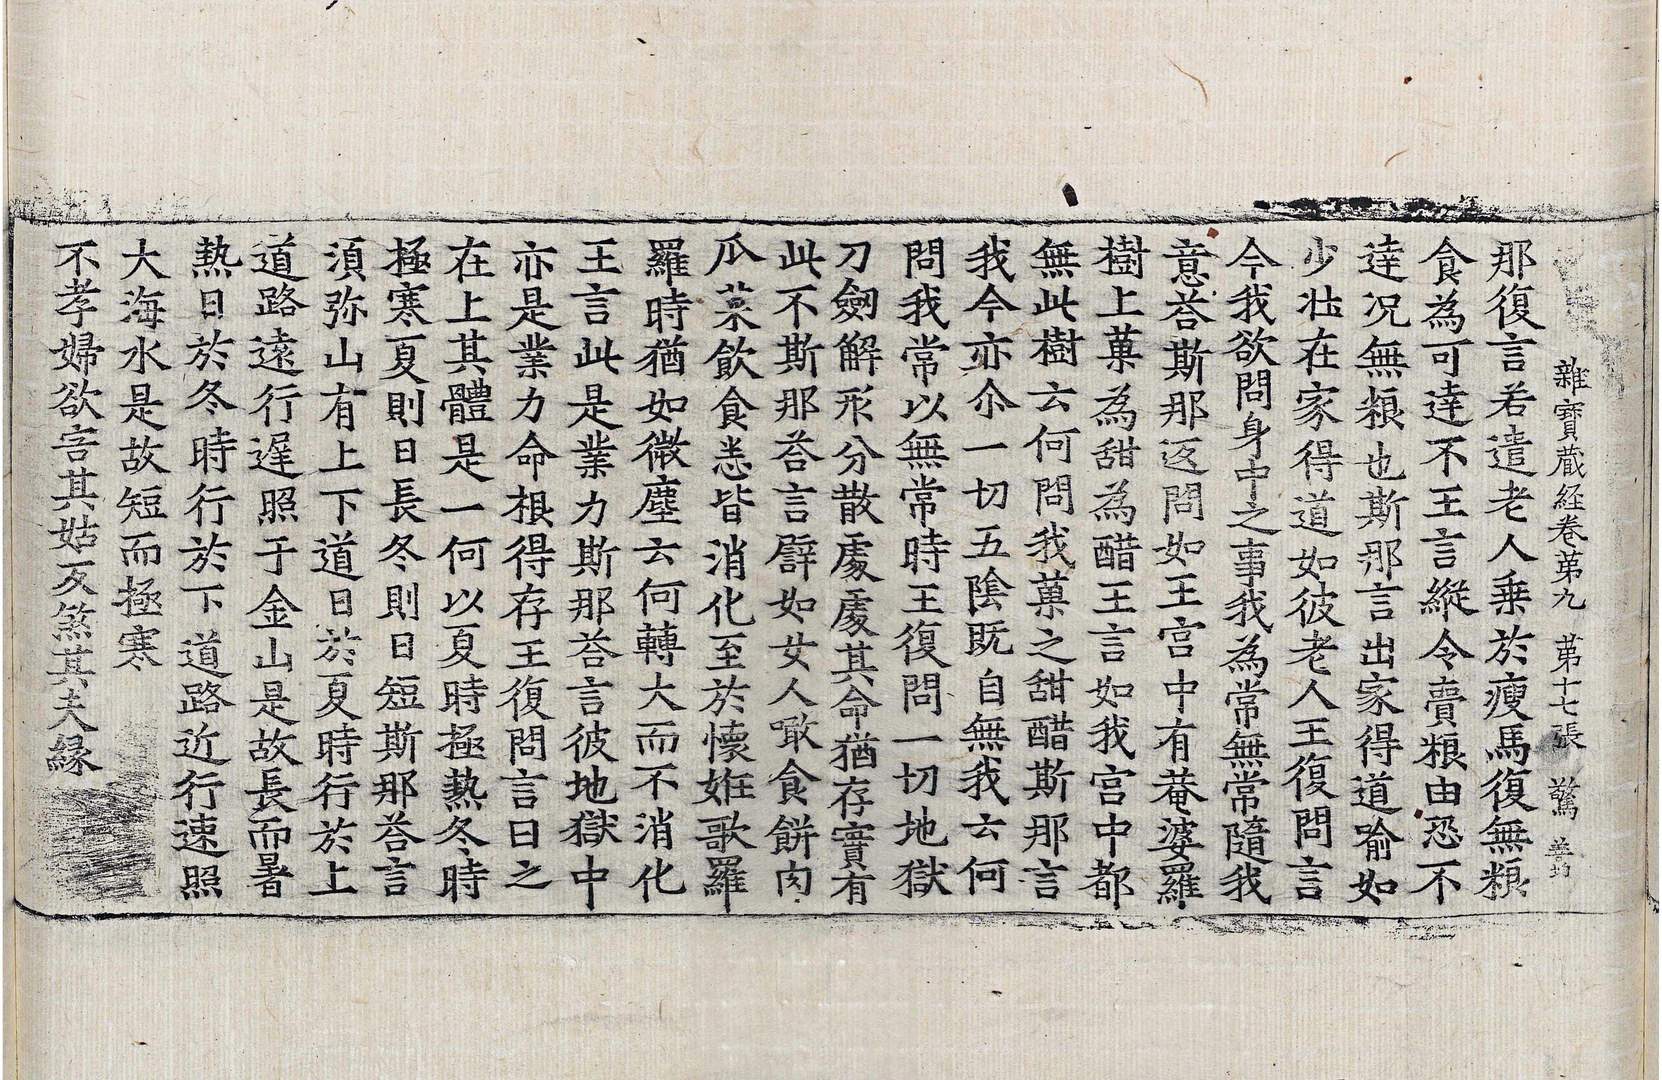 雜寶藏經卷苐九　苐十七張　驚
那復言若遣老人乗於瘦馬復無粮
食為可達不王言縱令賷粮由恐不
達況無粮也斯那言出家得道喻如
少壯在家得道如彼老人王復問言
今我欲問身中之事我為常無常隨我
意荅斯那返問如王宮中有菴婆羅
樹上菓為甜為醋王言如我宮中都
無此樹云何問我菓之甜醋斯那言
我今亦尒一切五陰既自無我云何
問我常以無常時王復問一切地獄
刀劒解形分散處處其命猶存實有
此不斯那荅言譬如女人噉食餅肉
瓜菜飲食悉皆消化至於懷姙歌羅
羅時猶如微塵云何轉大而不消化
王言此是業力斯那荅言彼地獄中
亦是業力命根得存王復問言日之
在上其體是一何以夏時極熱冬時
極寒夏則日長冬則日短斯那荅言
湏弥山有上下道日於夏時行於上
道路遠行遅照于金山是故長而暑
熱日於冬時行於下道路近行速照
大海水是故短而極寒
不孝婦欲害其姑反煞其夫縁